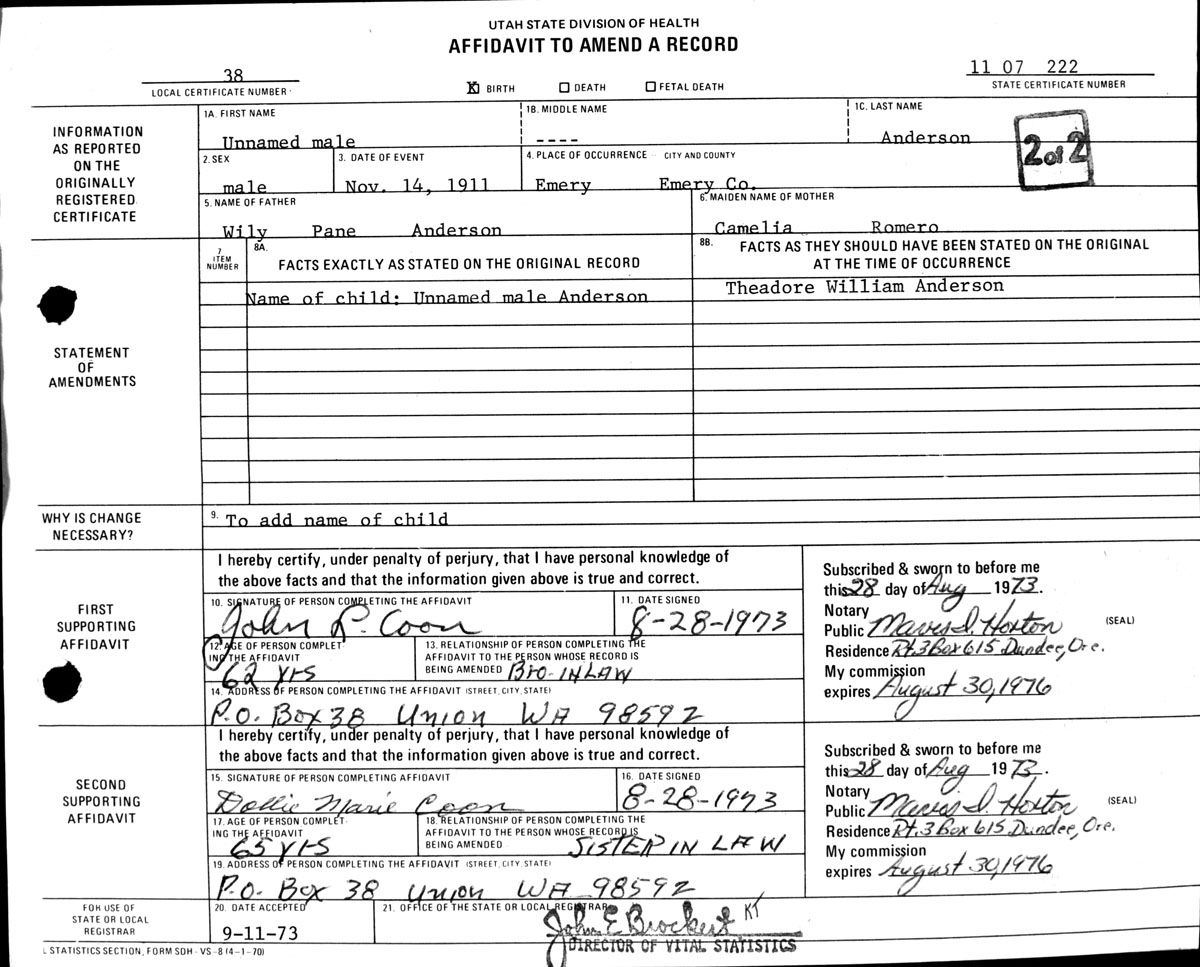 UTAH STATE DIVISION OF HEALTH
AFFIDAVIT TO AMEND A RECORD
38
LOCAL CERTIFICATE NUMBER
X BIRTH ☐ DEATH ☐ FETAL DEATH
11 07 222
STATE CERTIFICATE NUMBER
INFORMATION
AS REPORTED
ON THE
ORIGINALLY
REGISTERED
CERTIFICATE
1A. FIRST NAME
Unnamed male
1B. MIDDLE NAME
----
1C. LAST NAME
Anderson
2 of 2
2. SEX
male
3. DATE OF EVENT
Nov. 14, 1911
4. PLACE OF OCCURRENCE - CITY AND COUNTY
Emery Emery Co.
5. NAME OF FATHER
Wily Pane Anderson
6. MAIDEN NAME OF MOTHER
Camelia Romero
STATEMENT
OF
AMENDMENTS
7
ITEM
NUMBER
8A.
FACTS EXACTLY AS STATED ON THE ORIGINAL RECORD
8B. FACTS AS THEY SHOULD HAVE BEEN STATED ON THE ORIGINAL
AT THE TIME OF OCCURRENCE
Name of child: Unnamed male Anderson
Theadore William Anderson
WHY IS CHANGE
NECESSARY?
9. To add name of child
FIRST
SUPPORTING
AFFIDAVIT
I hereby certify, under penalty of perjury, that I have personal knowledge of
the above facts and that the information given above is true and correct.
10. SIGNATURE OF PERSON COMPLETING THE AFFIDAVIT
John R. Coon
11. DATE SIGNED
8-28-1973
12. AGE OF PERSON COMPLET-
ING THE AFFIDAVIT
62 yrs
13. RELATIONSHIP OF PERSON COMPLETING THE
AFFIDAVIT TO THE PERSON WHOSE RECORD IS
BEING AMENDED Bro-IN LAW
14. ADDRESS OF PERSON COMPLETING THE AFFIDAVIT (STREET, CITY, STATE)
P.O. Box 38 Union WA 98592
Subscribed & sworn to before me
this 28 day of Aug 1973.
Notary
Public Mavis I. Horton (SEAL)
Residence Rt. 3 Box 615 Dundee, Ore.
My commission
expires August 30, 1976
SECOND
SUPPORTING
AFFIDAVIT
I hereby certify, under penalty of perjury, that I have personal knowledge of
the above facts and that the information given above is true and correct.
15. SIGNATURE OF PERSON COMPLETING AFFIDAVIT
Dollie Marie Coon
16. DATE SIGNED
8-28-1973
17. AGE OF PERSON COMPLET-
ING THE AFFIDAVIT
65 yrs
18. RELATIONSHIP OF PERSON COMPLETING THE
AFFIDAVIT TO THE PERSON WHOSE RECORD IS
BEING AMENDED SISTER IN LAW
19. ADDRESS OF PERSON COMPLETING THE AFFIDAVIT (STREET, CITY, STATE)
P.O. Box 38 Union WA 98592
Subscribed & sworn to before me
this 28 day of Aug 1973.
Notary
Public Mavis I. Horton (SEAL)
Residence Rt. 3 Box 615 Dundee, Ore.
My commission
expires August 30, 1976
FOR USE OF
STATE OR LOCAL
REGISTRAR
20. DATE ACCEPTED
9-11-73
21. OFFICE OF THE STATE OR LOCAL REGISTRAR
John E Brockert KT
DIRECTOR OF VITAL STATISTICS
L STATISTICS SECTION, FORM SDH - VS - 8 (4-1-70)